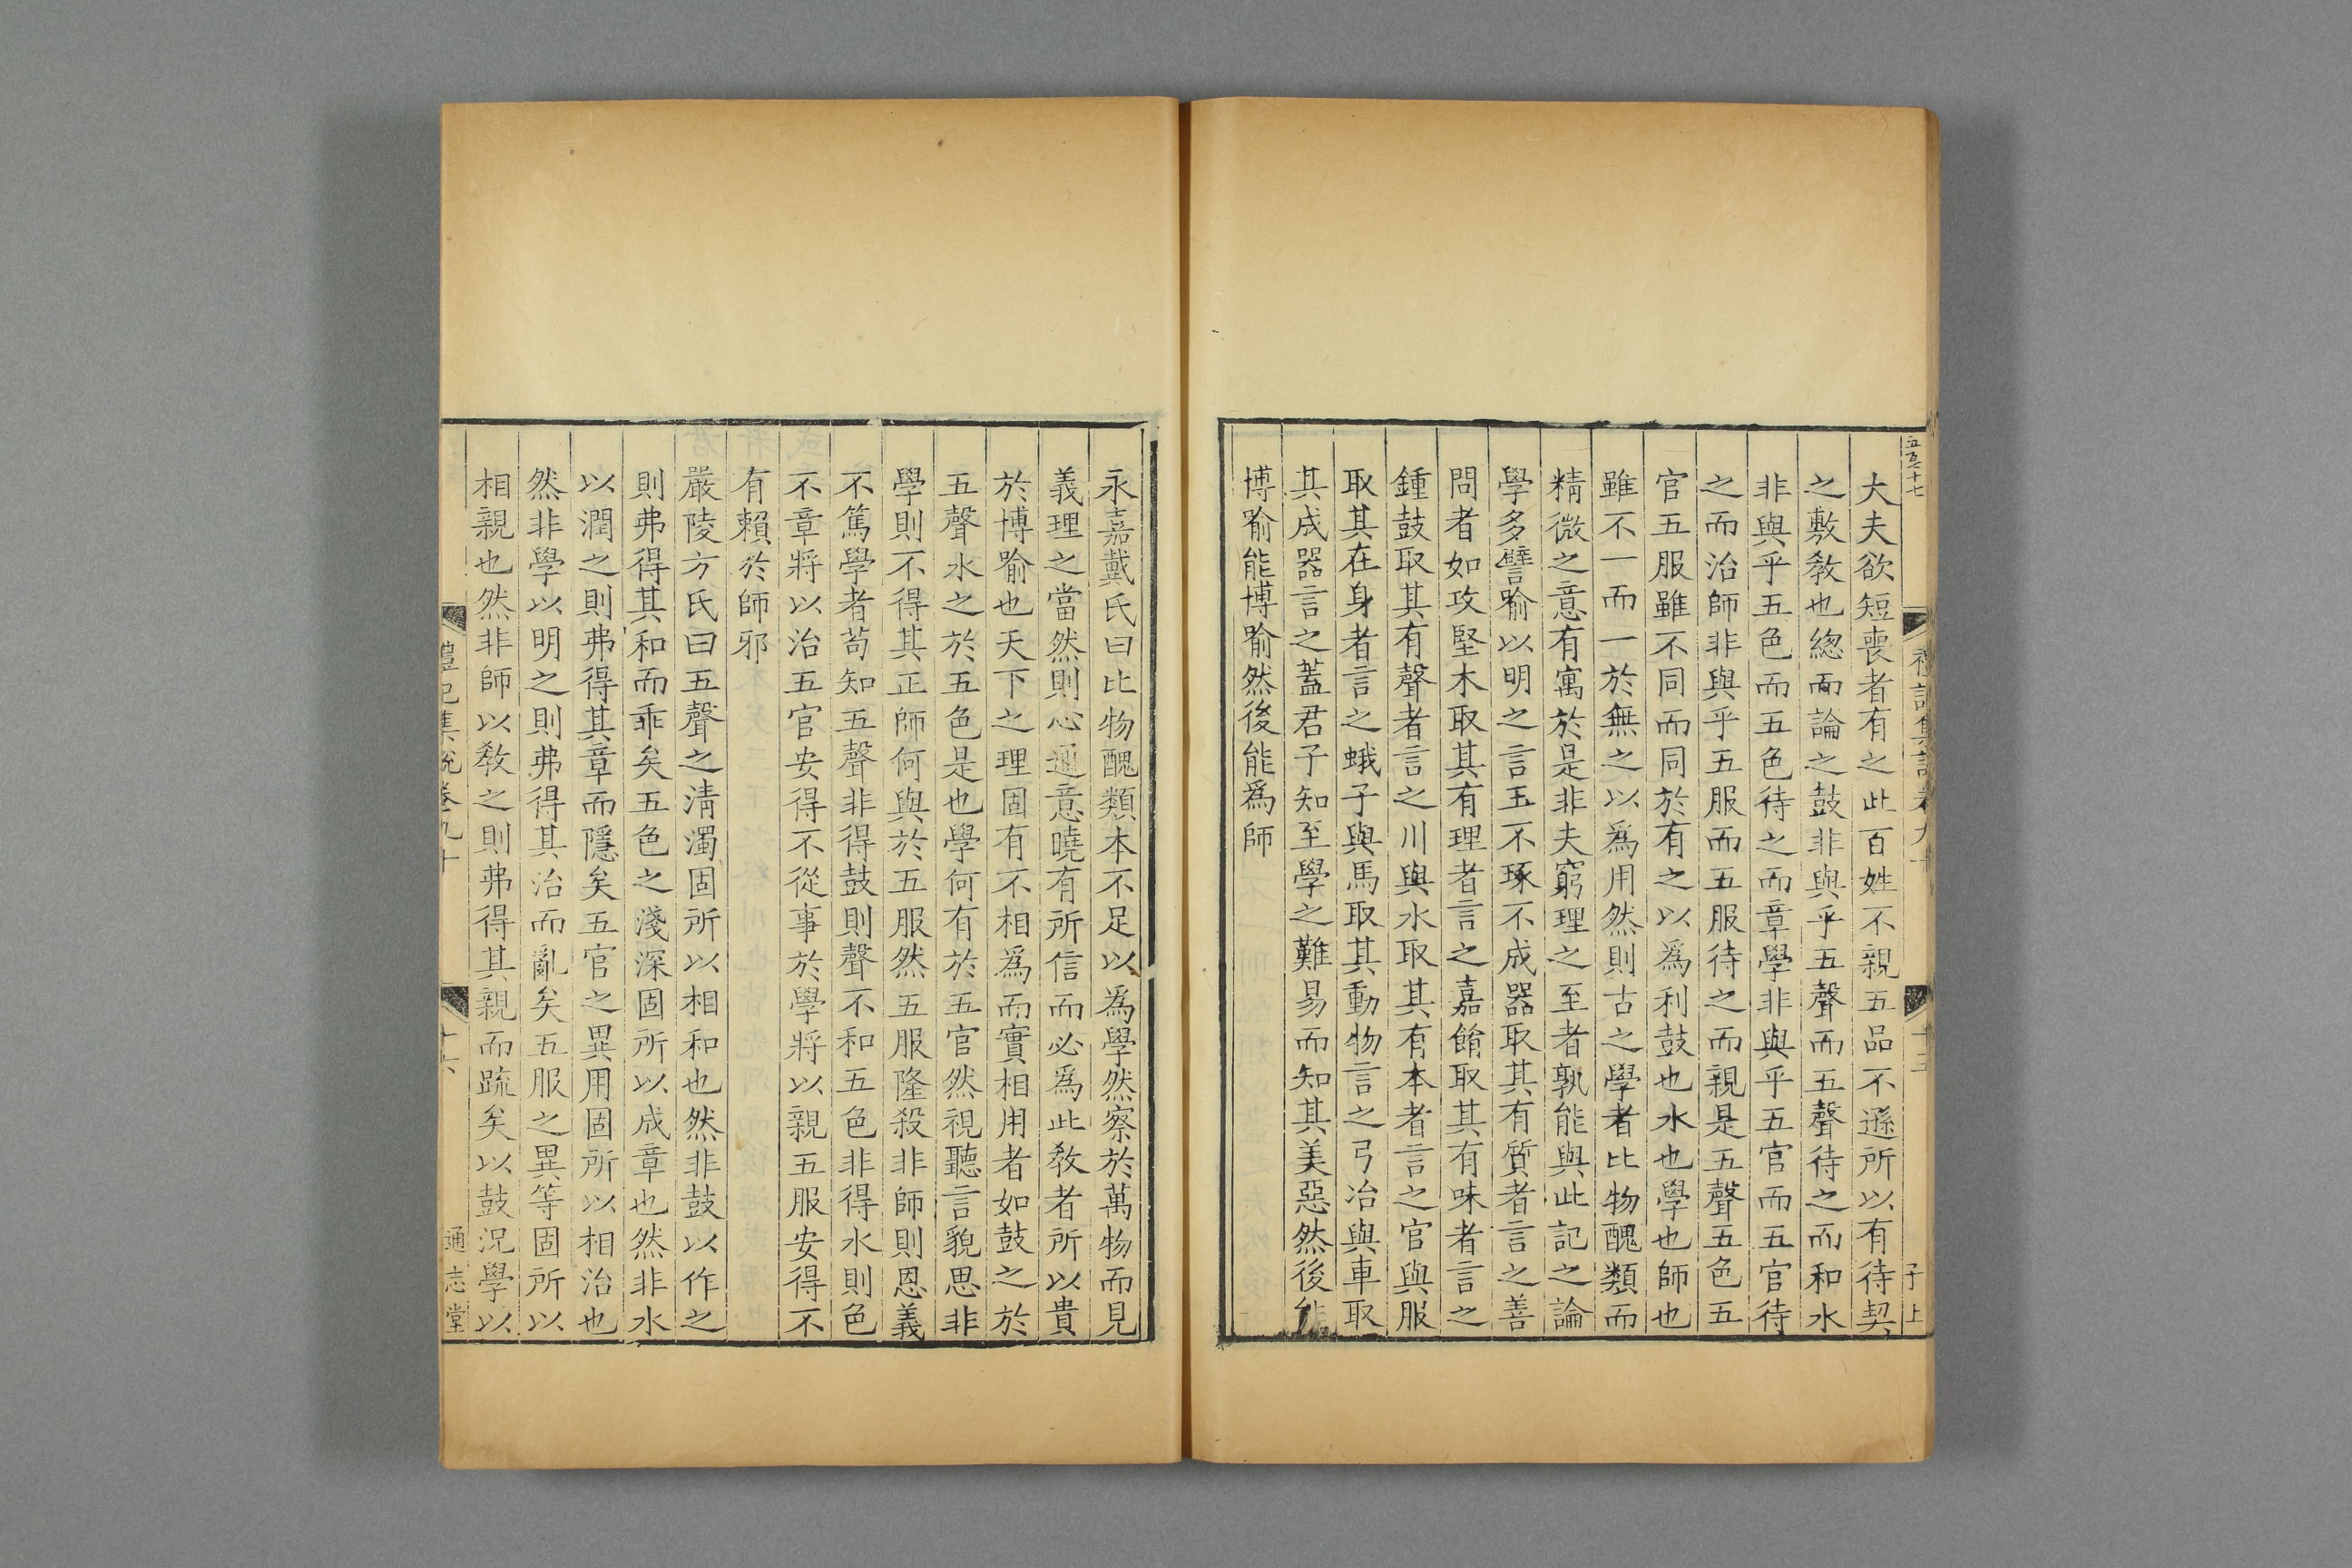 大夫欲短喪者有之此百姓不親五品不遜所以有待契
之敷敎也總而論之鼓非與乎五聲而五聲待之而和水
非與乎五色而五色待之而章學非與乎五官而五官待
之而治師非與乎五服而五服待之而親是五聲五色五
官五服雖不同而同於有之以爲利鼓也水也學也師也
雖不一而一於無之以爲用然則古之學者比物醜類而
精微之意有寓於是非夫窮理之至者孰能與此記之論
學多譬喻以明之言玉不琢不成器取其有質者言之善
問者如攻堅木取其有理者言之嘉餚取其有味者言之
鍾鼓取其有聲者言之川與水取其有本者言之官與服
取其在身者言之蛾子與馬取其動物言之弓冶與車取
其成器言之蓋君子知至學之難易而知其美惡然後能
博喻能博喻然後能爲師
子上
永嘉戴氏曰比物醜類本不足以爲學然察於萬物而見
義理之當然則心通意曉有所信而必爲此敎者所以貴
於博喻也天下之理固有不相爲而實相用者如鼓之於
五聲水之於五色是也學何有於五官然視聽言貌思非
學則不得其正師何與於五服然五服隆殺非師則恩義
不篤學者苟知五聲非得鼓則聲不和五色非得水則色
不章將以治五官安得不從事於學將以親五服安得不
有賴於師邪
嚴陵方氏曰五聲之清濁固所以相和也然非鼓以作之
則弗得其和而乖矣五色之淺深固所以成章也然非水
以潤之則弗得其章而隱矣五官之異用固所以相治也
然非學以明之則弗得其治而亂矣五服之異等固所以
相親也然非師以敎之則弗得其親而疏矣以鼓況學以
禮記集說卷九十
通志堂